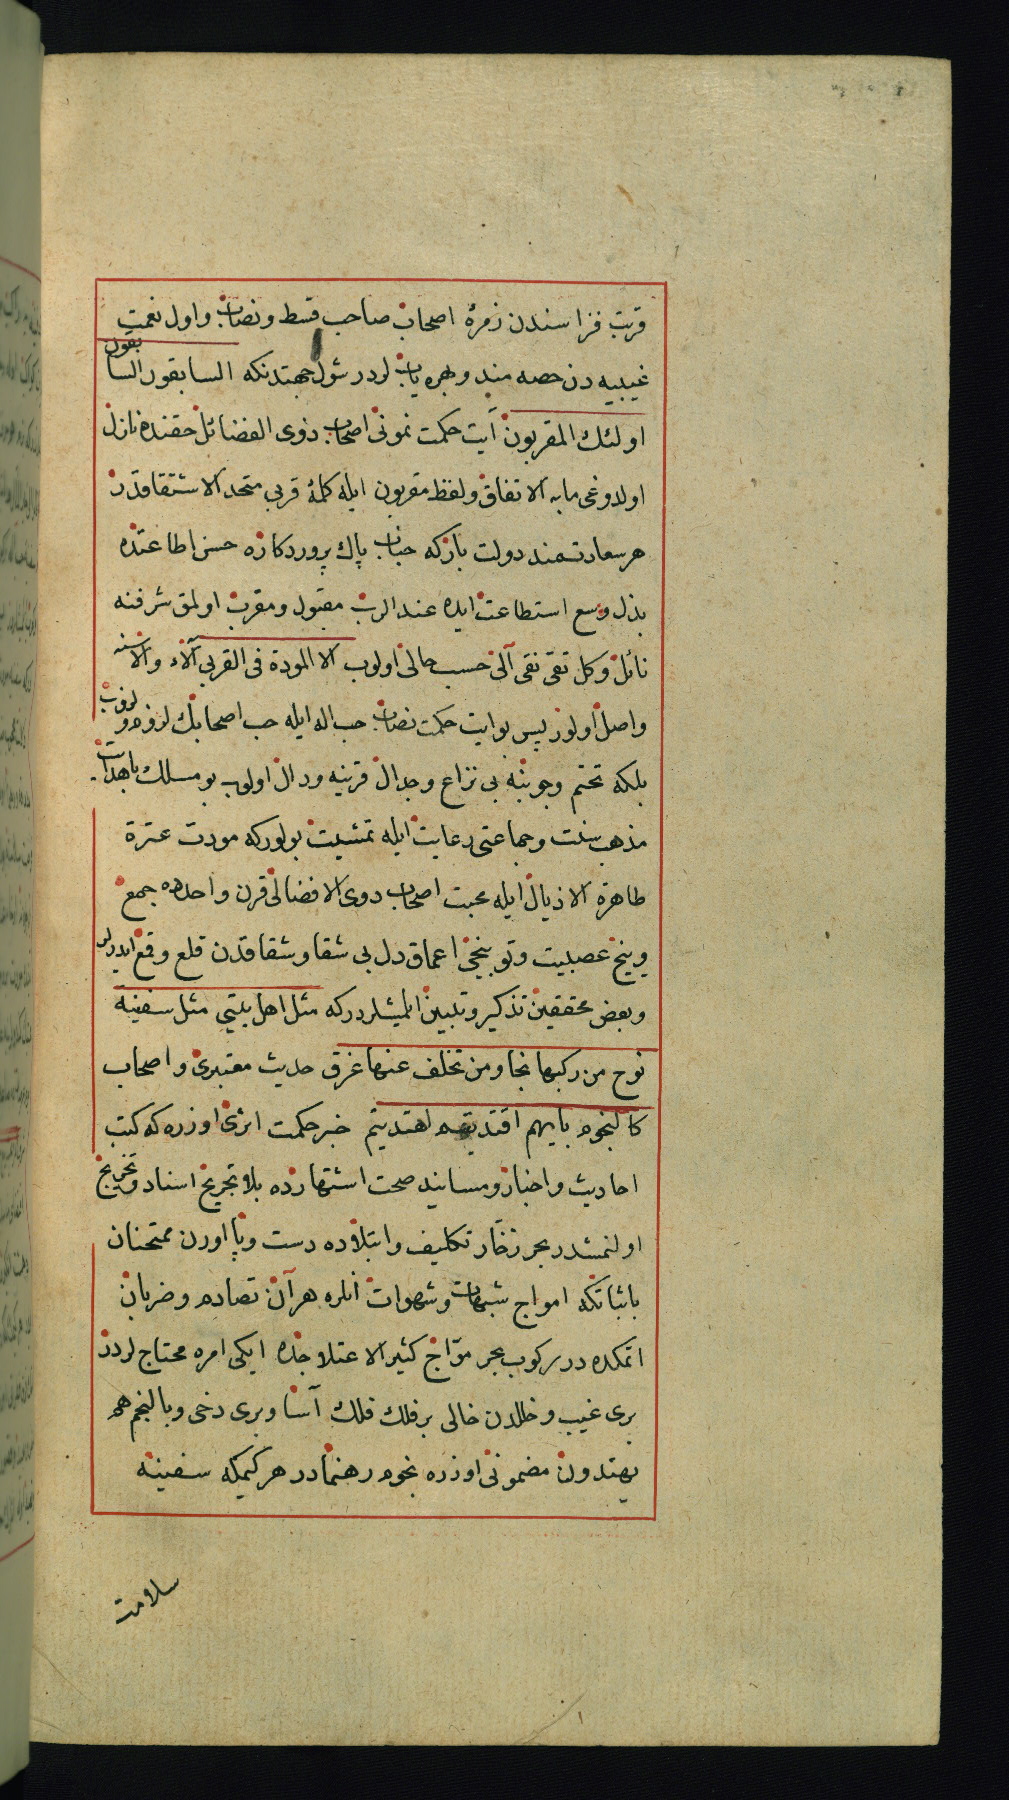 قربت فزاسندن زمرهٔ اصحاب صاحب قسط ونصاب واول نعمت
غیبیه دن حصه مند وبهره یاب لردر شول جهتدنکه السابقون السابقون
اولئك المقربون آیت حکمت نمونی اصحاب ذوی الفضائل حقنده نازل
اولدوغی مابه الاتفاق ولفظ مقربون ایله کلمهٔ قربی متحد الاشتقاقدر
هر سعادتمند دولت یارکه جناب پاك پروردکاره حسن اطاعتده
بذل وسع استطاعت ایده عند الرب مقبول ومقرب اولمق شرفنه
نائل وکل تقی نقی آلی حسب حالی اولوب الا المودة فی القربی آلاء والاسنه
واصل اولور پس بو ایت حکمت نصاب حب اله ایله حب اصحابك لزومو
بلکه تختم وجوبنه بی نزاع وجدال قرینه ودال اولوب بو مسلك باهدایت
مذهب سنت وجماعتی رعایت ایله تمشیت بولورکه مودت عترة
طاهرة الاذیال ایله محبت اصحاب ذوی الافضالی قرن واحده جمع
وبیخ عصبیت وتوبیخی اعماق دل بی شقا وشقاقدن قلع وقمع ایدرلر
وبعض محققین تذکیر وتبیین ایلمیشلردرکه مثل اهل بیتی مثل سفینه
نوح من رکبها نجا ومن تخلف عنها غرق حدیث معتبری واصحاب
کالنجوم بایهم اقتدیتم اهتدیتم خبر حکمت اثری اوزره که کتب
احادیث واخبار ومسانید صحت اشتهارده بلا تجریح اسناد وتخریج
اولنمشدر بحر زخار تکلیف وابتلاده دست وپا اورن ممتحنان
باثباتکه امواج شبهات وشهوات انلره هر آن تصادم وضربان
اتمکده در رکوب بحر مواج کثیر الاعتلاجده ایکی امره محتاج لردر
بری عیب وخللدن خالی بر فلك فلك آسا وبری دخی وبالنجم هم
یهتدون مضمونی اوزره نجوم رهنمادر هر کیمکه سفینه
سلامت